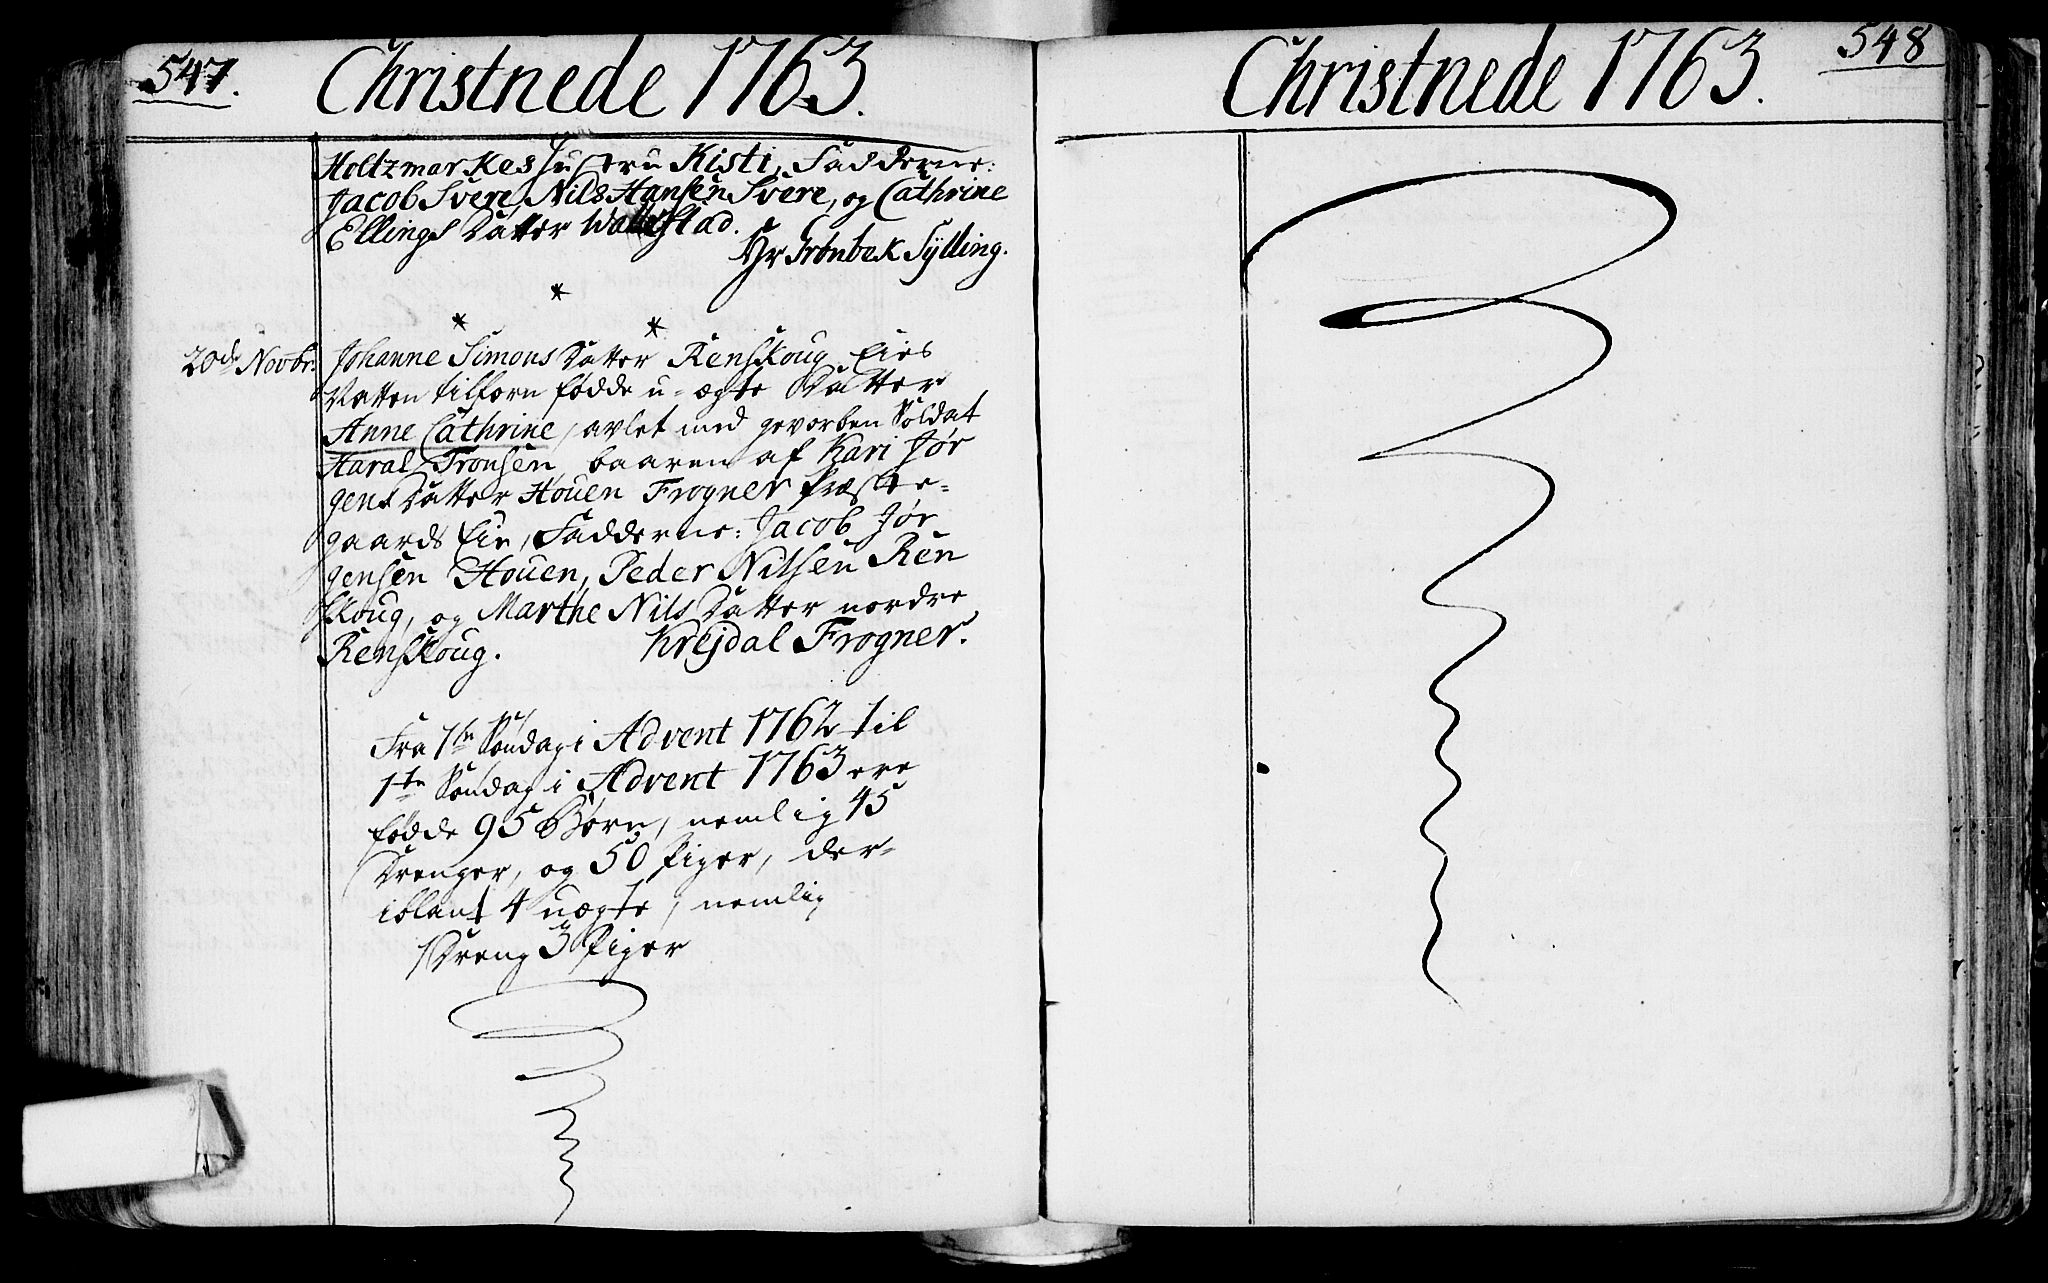 547.
Christnede 1763.
Holtzmarkes Hustru Kisti, Fadderne:
Jacob Svere, Nils Hansen Svere, og Cathrine
Ellings Datter Wallstad.
Hr Grønbek Sylling.
20de Novbr: Johanne Simons Datter Renskoug Eies
Natten tilforn fødde u-ægte Datter
Anne Cathrine, avlet med gevorben Soldat
Haral Tronsen, baaren af Kari Jør
gens Datter Houen Frogner Præste-
gaards Eie, Fadderne: Jacob Jør
gensen Houen, Peder Nilsen Ren
skoug, og Marthe Nils Datter nordre
Renskoug. Krejdal Frogner.
Fra 1ste Søndag i Advent 1762 til
1ste Søndag i Advent 1763 ere
fødde 95 Børn, nemlig 45
Drenger, og 50 Piger, der-
iblant 4 uægte, nemlig
1 Dreng 3 Piger
548
Christnede 1763.